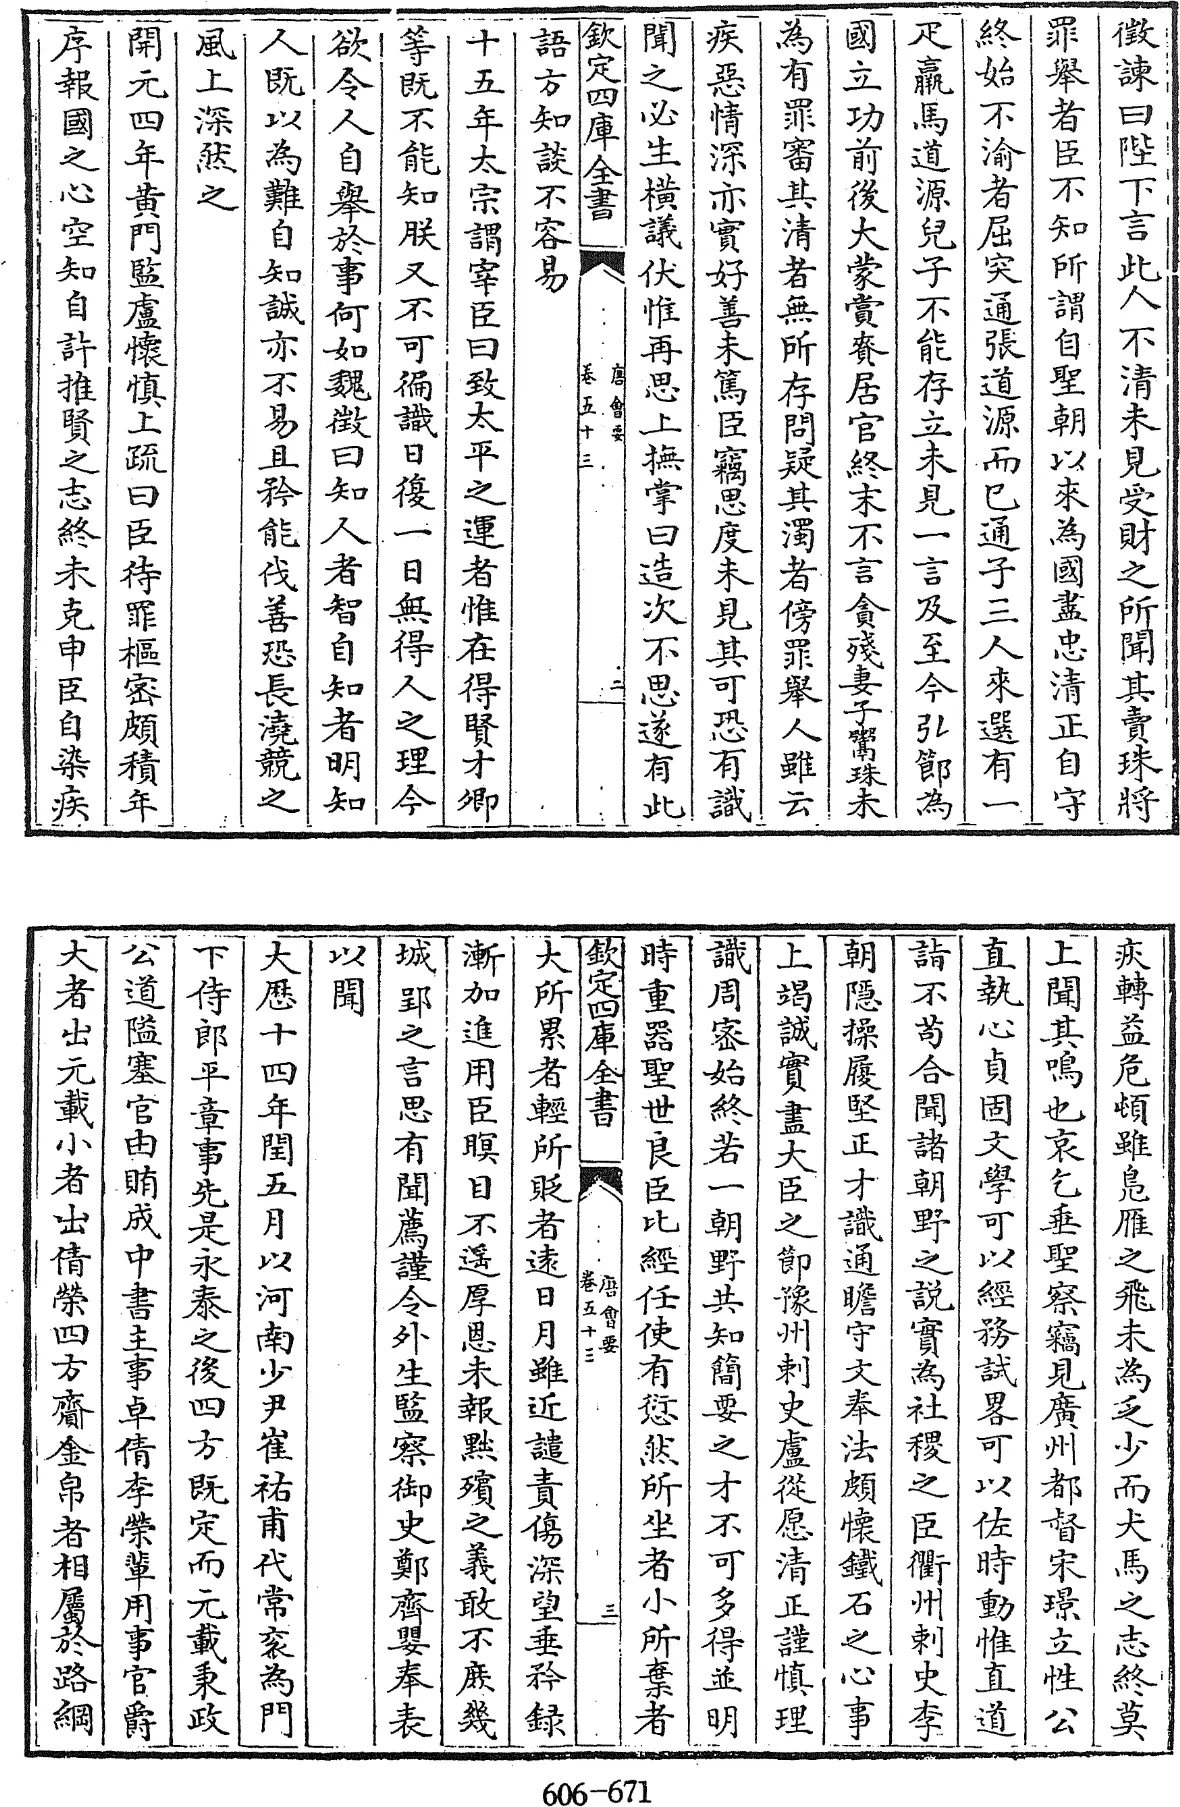 徵諫曰陛下言此人不清未見受財之所聞其賣珠將
罪舉者臣不知所謂自聖朝以來為國盡忠清正自守
終始不渝者屈突通張道源而已通子三人來選有一
疋羸馬道源兒子不能存立未見一言及至今弘節為
國立功前後大蒙賞賚居官終末不言貪殘妻子鬻珠未
為有罪審其清者無所存問疑其濁者傍罪舉人雖云
疾惡情深亦實好善未篤臣竊思度未見其可恐有識
聞之必生橫議伏惟再思上撫掌曰造次不思遂有此
欽定四庫全書
唐會要
卷五十三
二
語方知談不容易
十五年太宗謂宰臣曰致太平之運者惟在得賢才卿
等既不能知朕又不可徧識日復一日無得人之理今
欲令人自舉於事何如魏徵曰知人者智自知者明知
人既以為難自知誠亦不易且矜能伐善恐長澆競之
風上深然之
開元四年黃門監盧懷慎上疏曰臣待罪樞密頗積年
序報國之心空知自許推賢之志終未克申臣自染疾
疾轉益危頓雖鳧雁之飛未為乏少而犬馬之志終莫
上聞其鳴也哀乞垂聖察竊見廣州都督宋璟立性公
直執心貞固文學可以經務試畧可以佐時動惟直道
詣不苟合聞諸朝野之說實為社稷之臣衢州刺史李
朝隱操履堅正才識通瞻守文奉法頗懷鐵石之心事
上竭誠實盡大臣之節豫州刺史盧從愿清正謹慎理
識周密始終若一朝野共知簡要之才不可多得並明
時重器聖世良臣比經任使有愆然所坐者小所棄者
欽定四庫全書
唐會要
卷五十三
三
大所累者輕所貶者遠日月雖近譴責傷深望垂矜錄
漸加進用臣瞑目不遥厚恩未報黜殯之義敢不庶幾
城郢之言思有聞薦謹令外生監察御史鄭齊嬰奉表
以聞
大厯十四年閏五月以河南少尹崔祐甫代常衮為門
下侍郎平章事先是永泰之後四方既定而元載秉政
公道隘塞官由賄成中書主事卓倩李榮輩用事官爵
大者出元載小者出倩榮四方齎金帛者相屬於路綱
606-671